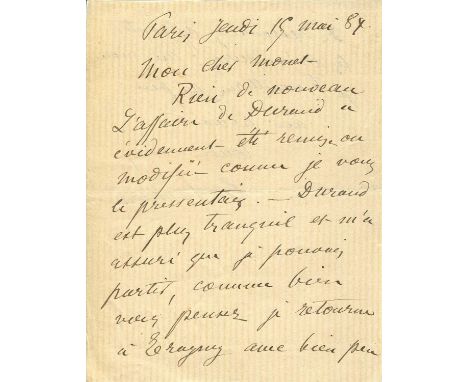 Paris Jeudi 15 mai 84.
Mon cher Monet
Rien de nouveau
L'affaire de Durand a
évidemment été remise ou
modifiée comme je vous
le pressentais. – Durand
est plus tranquil et m'a
assuré que je pouvais
partir, comme bien
vous pensez je retourne
à Eragny avec bien peu